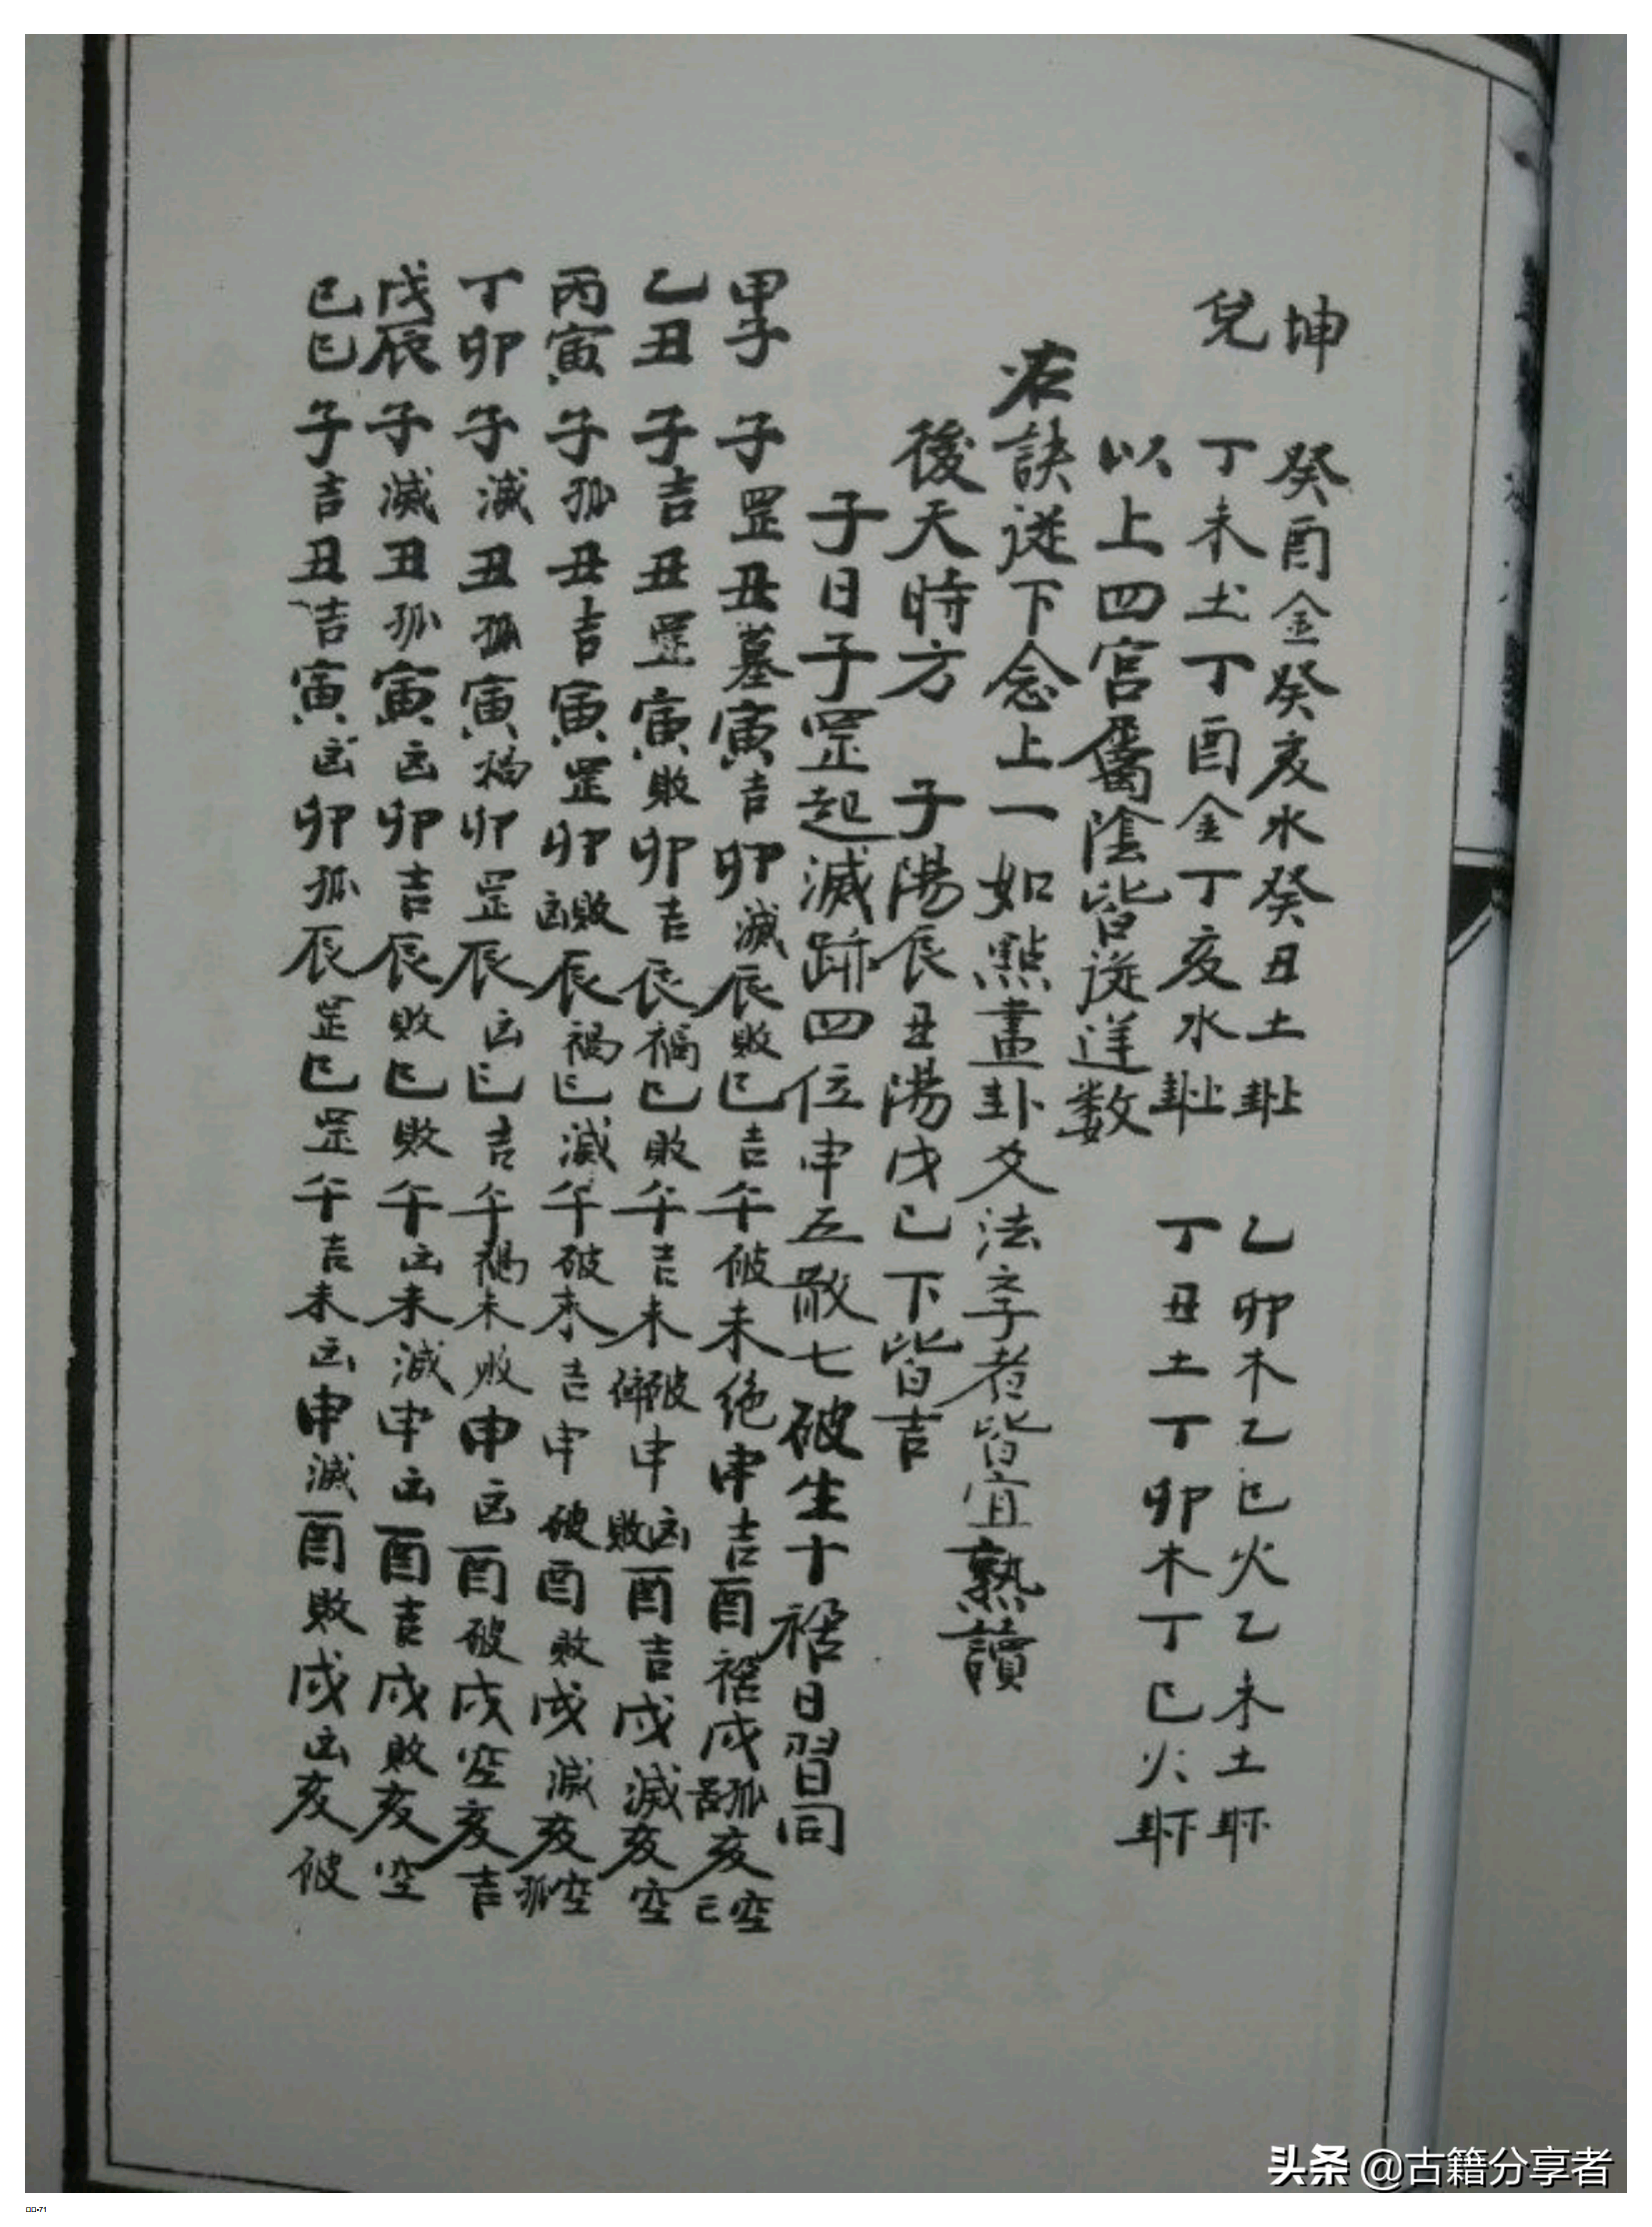 坤 癸酉金癸亥水癸丑土卦上 乙卯木乙巳火乙未土卦下
兌 丁未土丁酉金丁亥水卦上 丁丑土丁卯木丁巳火卦下
以上四宮屬陰皆從逆数
右訣從下念上一如點畫卦爻法李者皆宜熟讀
後天時方 子陽辰丑陽戊巳下皆吉
子日子罡起滅跡四位申五散七破生十禍日習同
甲子 子罡丑墓寅吉卯滅辰敗巳吉午破未絶申吉酉禍戌孤亥空
乙丑 子吉丑罡寅敗卯吉辰禍巳敗午吉未破申凶敗酉吉戌滅亥空
丙寅 子孤丑吉寅罡卯凶敗辰禍巳滅午破未吉申破酉敗戌滅亥孤空
丁卯 子滅丑孤寅禍卯罡辰凶巳吉午禍未敗申凶酉破戌空亥吉
戊辰 子滅丑孤寅凶卯吉辰敗巳敗午凶未滅申凶酉吉戌敗亥空
己巳 子吉丑吉寅凶卯孤辰罡巳罡午吉未凶申滅酉敗戌凶亥破
头条 @古籍分享者